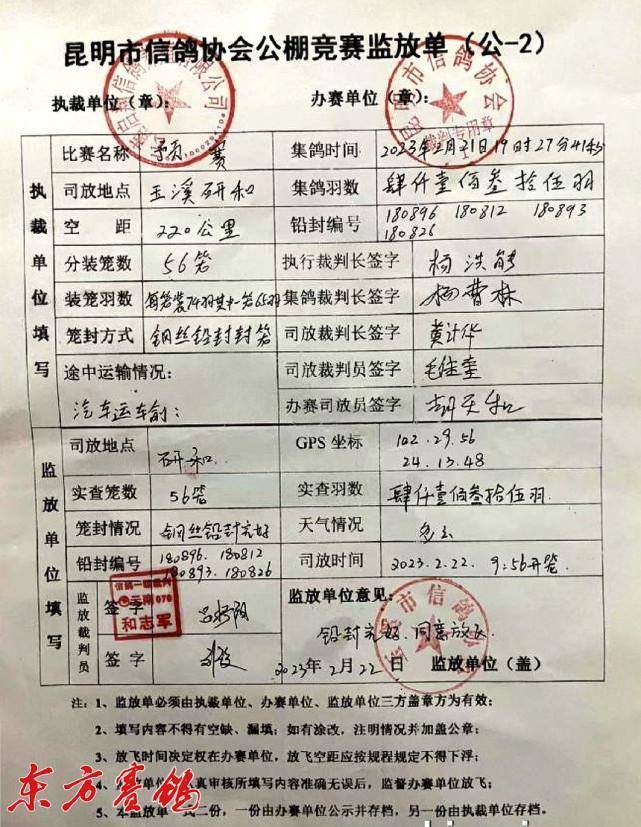 昆明市信鸽协会公棚竞赛监放单（公-2）
执裁单位（章）： 办赛单位（章）：
执裁单位填写
比赛名称 预赛 集鸽时间 2023年2月21日19时27分41秒
司放地点 玉溪研和 集鸽羽数 肆仟壹佰叁拾伍羽
空距 220公里 铅封编号 180896 180812 180893 180826
分装笼数 56笼 执行裁判长签字 杨洪能
装笼羽数 每笼装74羽其中一笼65羽 集鸽裁判长签字 杨曹林
笼封方式 钢丝铅封封笼 司放裁判长签字 莫计华
途中运输情况： 司放裁判员签字
汽车运输： 办赛司放员签字
监放单位填写
司放地点 研和 GPS坐标 102.29.56 24.13.48
实查笼数 56笼 实查羽数 肆仟壹佰叁拾伍羽.
笼封情况 钢丝铅封完好 天气情况 多云
铅封编号 180896. 180812 180893. 180826 司放时间 2023.2.22. 9:56开笼
监放裁判员 签字 监放单位意见：
铅封完好.同意放飞
签字 2023年2月22日 监放单位（盖）
云南070
和志军
市信鸽协会
裁判专用章
注：1、监放单必须由执裁单位、办赛单位、监放单位三方盖章方为有效；
2、填写内容不得有空缺、漏填；如有涂改，注明情况并加盖公章；
3、放飞时间决定权在办赛单位，放飞空距应按规程规定不得下浮；
4、 单位 真审核所填写内容准确无误后，监督办赛单位放飞；
5、本监放单一式二份，一份由办赛单位公示并存档，另一份由执裁单位存档。
东方赛鸽